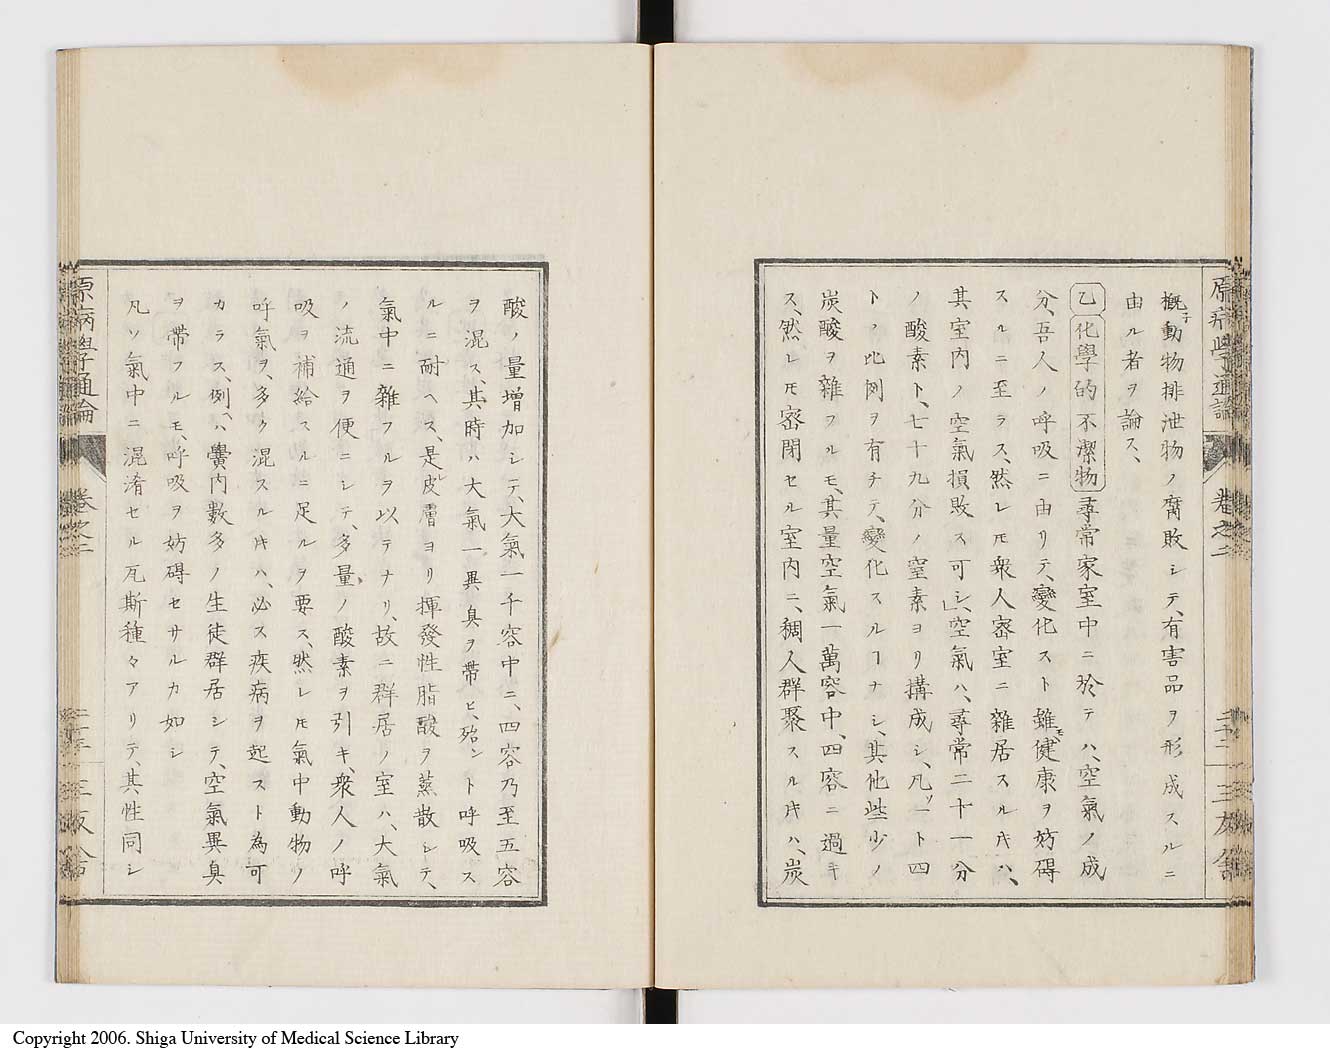 原病學通論
卷之二
三友舍
概子動物排泄物ノ腐敗シテ、有害品ヲ形成スルニ
由ル者ヲ論ス、
乙 化學的不潔物 尋常家室中ニ於テハ、空氣ノ成
分、吾人ノ呼吸ニ由リテ、變化スト雖モ健康ヲ妨碍
スルニ至ラス、然レㇳモ衆人密室ニ雜居スルキハ、
其室内ノ空氣損敗ス可シ、空氣ハ、尋常二十一分
ノ酸素ト、七十九分ノ窒素ヨリ搆成シ、凡ソ一ト四
トノ比例ヲ有チテ、變化スルヿナシ、其他些少ノ
炭酸ヲ雜フルモ、其量空氣一萬容中、四容ニ過キ
ス、然レㇳモ密閉セル室内ニ、稠人群聚スルキハ、炭
酸ノ量増加シテ、大氣一千容中ニ、四容乃至五容
ヲ混ス、其時ハ大氣一異臭ヲ帶ヒ、殆ント呼吸ス
ルニ耐ヘス、是レ皮膚ヨリ揮發性脂酸ヲ蒸散シテ、
氣中ニ雜フルヲ以テナリ、故ニ群居ノ室ハ、大氣
ノ流通ヲ便ニシテ、多量ノ酸素ヲ引キ、衆人ノ呼
吸ヲ補給スルニ足ルヲ要ス、然レㇳモ氣中動物ノ
呼氣ヲ、多ク混スルキハ、必ス疾病ヲ起スト為可
カラス、例ヘハ黌内數多ノ生徒群居シテ、空氣異臭
ヲ帶フルモ、呼吸ヲ妨碍セサルカ如シ
凡ソ氣中ニ混淆セル瓦斯種々アリテ、其性同シ
原病學通論
卷之二
三友舍
Copyright 2006. Shiga University of Medical Science Library